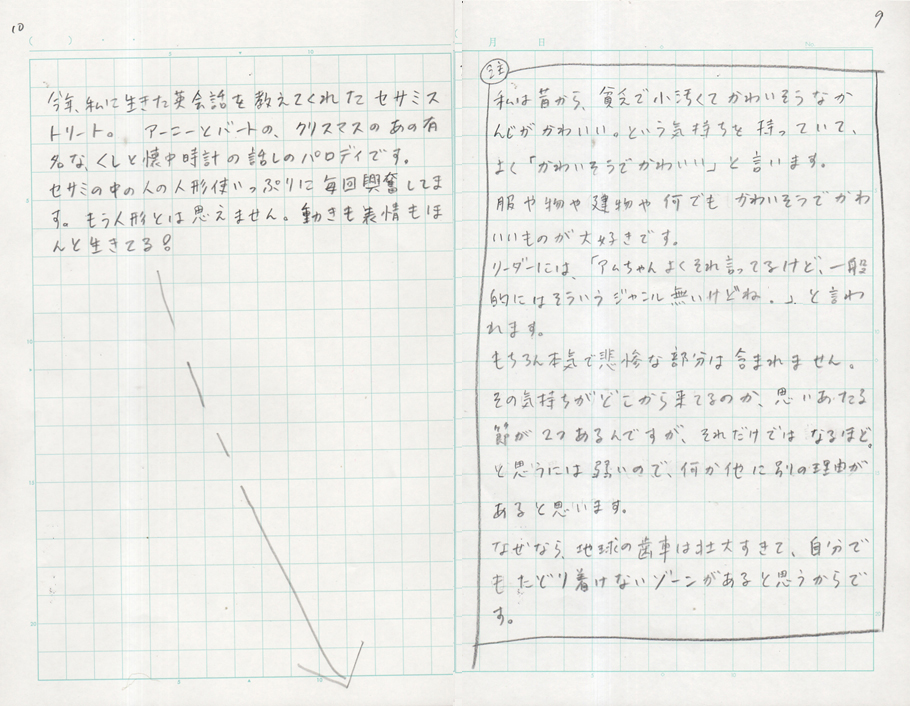 9
月 日
注
私は昔から、貧乏で小汚くてかわいそうなか
んじがかわいい。という気持ちを持っていて、
よく「かわいそうでかわいい」と言います。
服や物や建物や何でもかわいそうでかわ
いいものが大好きです。
リーダーには、「アムちゃんよくそれ言ってるけど、一般
的にはそういうジャンル無いけどね。」と言わ
れます。
もちろん本気で悲惨な部分は含まれません。
その気持ちがどこから来てるのか、思いあたる
節が2つあるんですが、それだけではなるほど。
と思うには弱いので、何か他に別の理由が
あると思います。
なぜなら、地球の歯車は壮大すぎて、自分で
もたどり着けないゾーンがあると思うからで
す。
10
今年、私に生きた英会話を教えてくれたセサミス
トリート。 アーニーとバートの、クリスマスのあの有
名な、くしと懐中時計の話しのパロディです。
セサミの中の人の人形使いっぷりに毎回興奮してま
す。もう人形とは思えません。動きも表情もほ
んと生きてる!